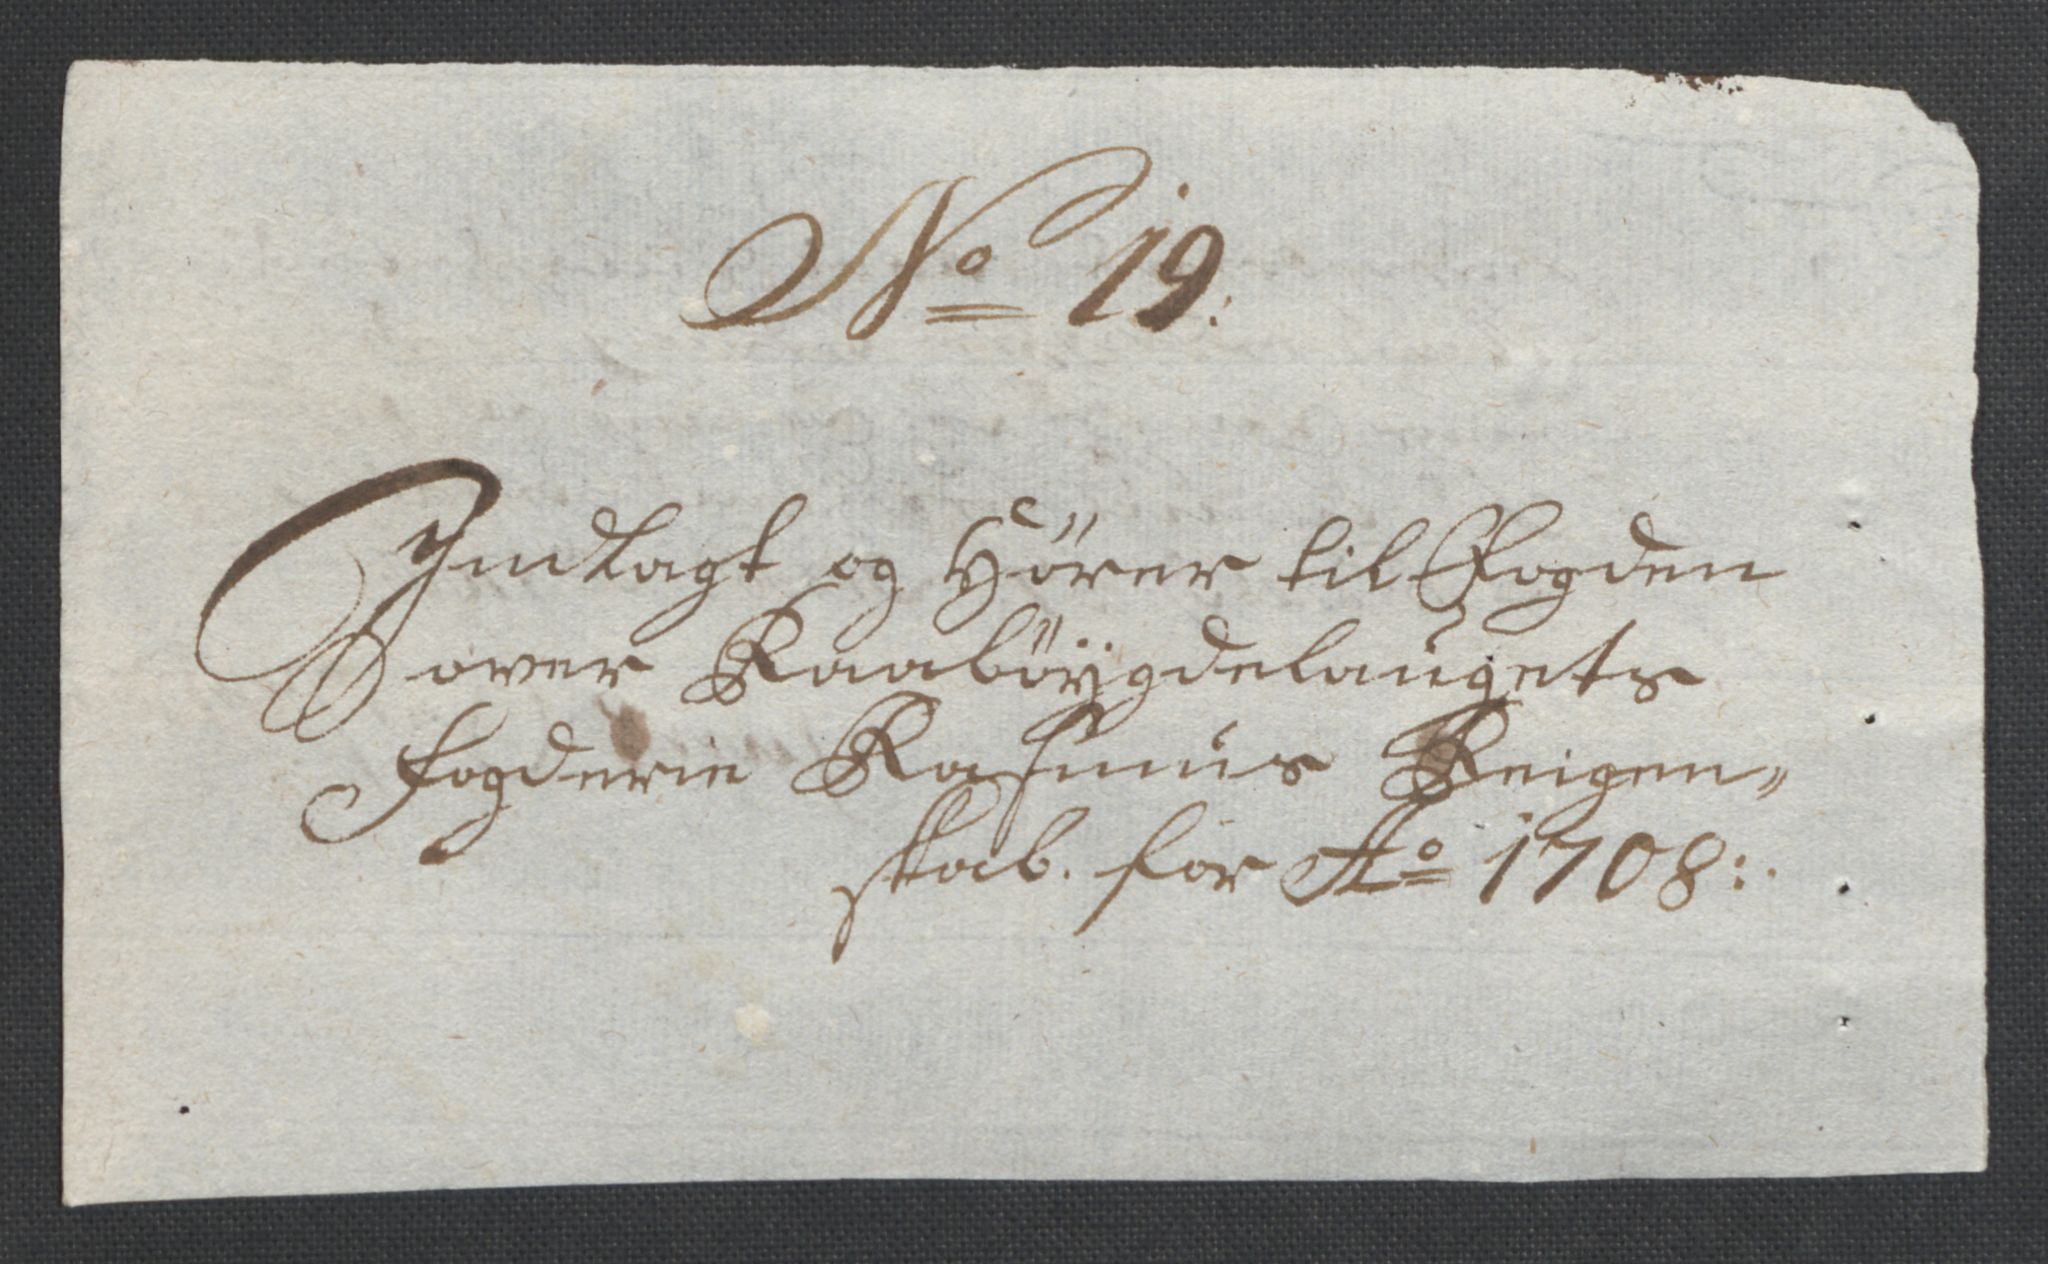 No 19.
Indlagt og Hörer til Fogden
over Raaböÿgdelaugets
fogderie Rasmus Reigen„
skab. for Ao 1708:.